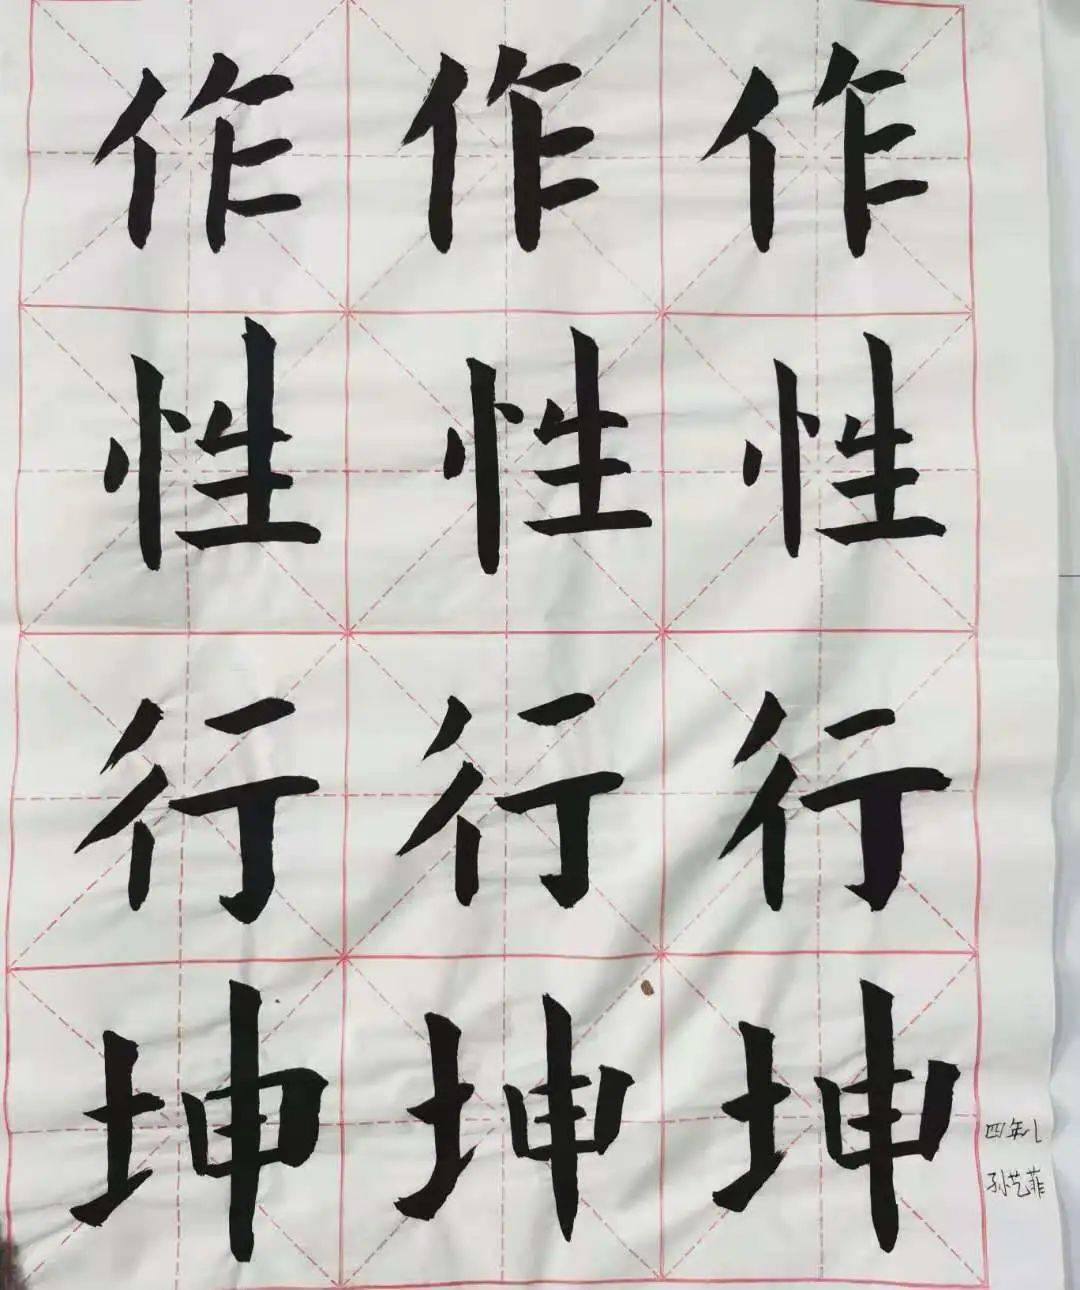 作作作
性性性
行行行
坤坤坤
四年
孙艺菲